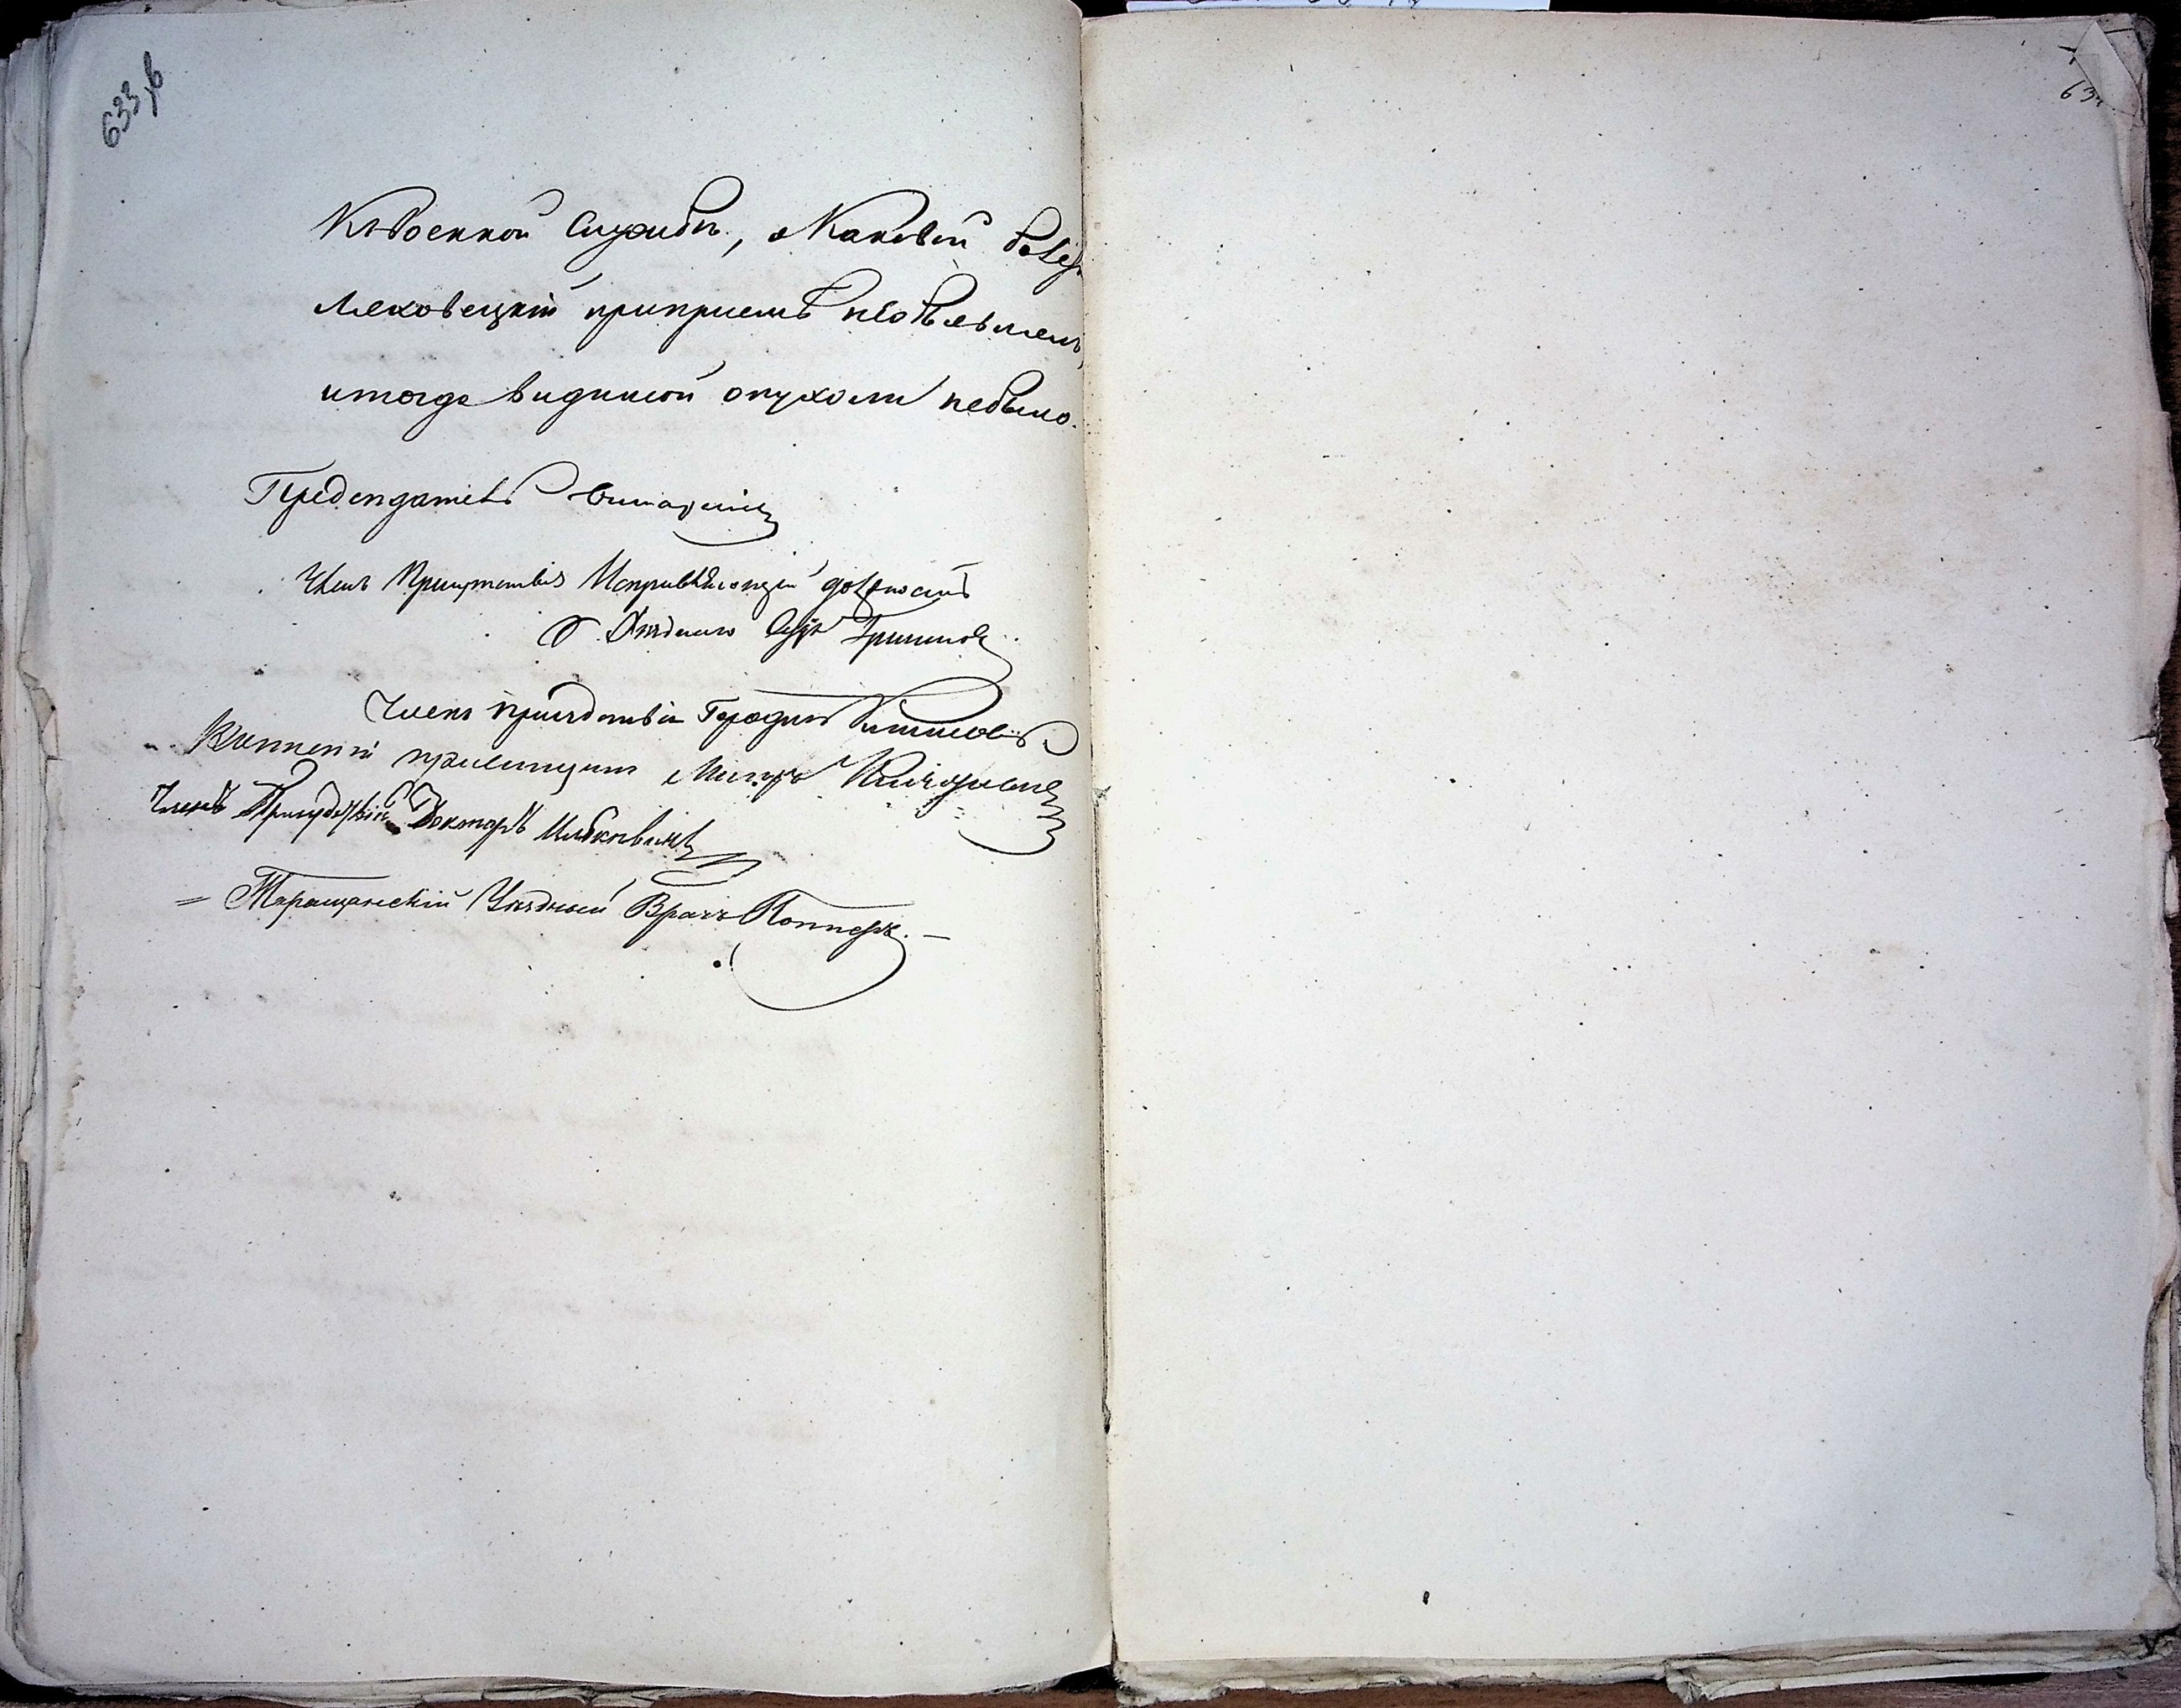 633 об
63
Къ военной службѣ, о каковой болѣз
Ляховецкій припріемѣ необъявлялъ,
итогда видимой опухоли небыло.
Предсѣдатель
Членъ Присутствія Исправляющій должность
Уѣзднаго
Членъ присудствія
Военный пріемщикъ Маіоръ
Членъ Присудствія Докторъ
Таращанскій Уѣздный Врачъ Попперъ.